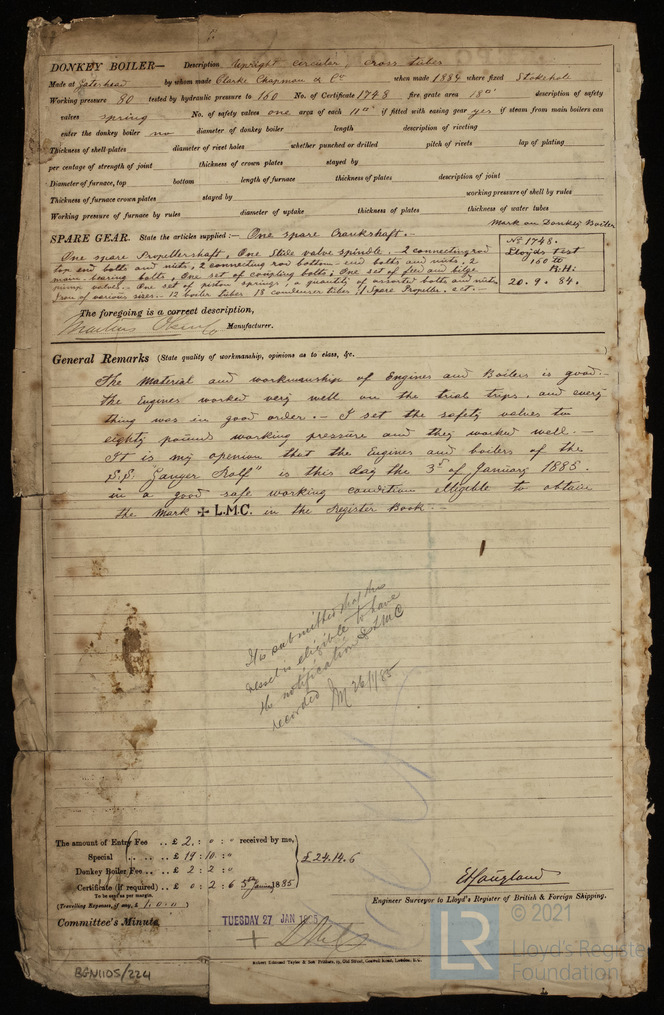 DONKEY BOILER— Description Upright circular, cross tubes
Made at Gateshead by whom made Clarke Chapman & Co when made 1884 where fixed Stokehole
Working pressure 80 tested by hydraulic pressure to 160 No. of Certificate 1748 fire grate area 18 description of safety
valves spring No. of safety valves one area of each 11 if fitted with easing gear yes if steam from main boilers can
enter the donkey boiler no diameter of donkey boiler length description of riveting
Thickness of shell-plates diameter of rivet holes whether punched or drilled pitch of rivets lap of plating
per centage of strength of joint thickness of crown plates stayed by
Diameter of furnace, top bottom length of furnace thickness of plates description of joint
Thickness of furnace crown plates stayed by working pressure of shell by rules
Working pressure of furnace by rules diameter of uptake thickness of plates thickness of water tubes
Mark on Donkey Boiler
No 1748.
Lloyds Test
160 lb
R.H:
20. 9. 84.
SPARE GEAR. State the articles supplied:— One spare Crankshaft.
One spare Propellershaft, One Slide valve spindle. 2 connecting rod
top end bolts and nuts, 2 connecting rod bottom end bolts and nuts, 2
main bearing bolts, One set of coupling bolts; One set of feed and bilge
pump valves. One set of piston springs, a quantity of assorted bolts and nuts
Iron of various sizes. 12 boiler tubes 18 condenser tubes, 1 Spare Propeller.
The foregoing is a correct description,
Manufacturer.
General Remarks (State quality of workmanship, opinions as to class, &c.
The Material and workmanship of Engines and Boilers is good.—
The Engines worked very well on the trial trips, and every
thing was in good order.— I set the safety valves to
eighty pounds working pressure and they worked well.—
It is my opinion that the Engines and boilers of the
S.S. "Ganger Rolf" is this day the 3rd of January 1885.
in a good safe working condition elligible to obtain
the Mark ✠ L.M.C. in the Register Book.—
It is submitted that this
vessel is eligible to have
the notification ✠ LMC
recorded 26/1/85
The amount of Entry Fee .. £ 2 : 0 : " received by me,
Special .. £ 19 : 10 : "
Donkey Boiler Fee .. £ 2 : 2 : "
Certificate (if required) .. £ 0 : 2 : 6 5th Janry 1885
To be sent as per margin.
(Travelling Expenses, if any, £ 1. 0. 0 )
£24.14.6
Engineer Surveyor to Lloyd's Register of British & Foreign Shipping.
Committee's Minute
TUESDAY 27 JAN 1885
Robert Edmund Taylor & Son Printers, 19, Old Street, Goswell Road, London, E.C.
BGN1105/224
LR
© 2021
Lloyd's Register
Foundation